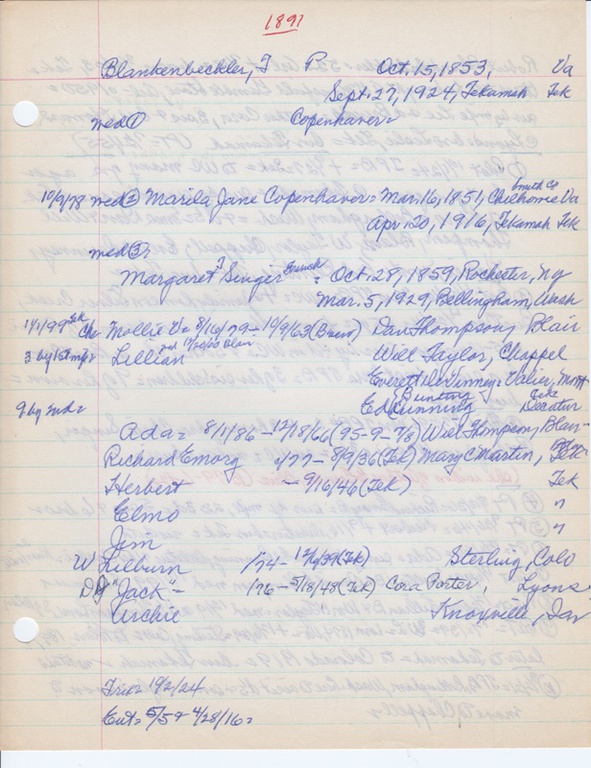 1891
Blankenbeckler, J P. Oct. 15, 1853, Va
Sept. 27, 1924, Tekamah Tek
wed ① Copenhaver =
10/9/78 wed ② Marila Jane Copenhaver = Mar. 16, 1851, Chilhowie Va
Smith Co
Apr. 20, 1916, Tekamah Tek
wed ③,
Margaret J Singer French = Oct. 28, 1859, Rochester, Ny
Mar. 5, 1929, Bellingham, Wash
1/1/99 Tek Ch = Mollie V = 8/16/79 - 10/9/63 Dan Thompson, Blair
3 by 1st mg = Lillian Will Taylor, Chappel
Everett DeVinney = Valier, Mont
Bunting
9 by 2nd = Ed Cunning Decatur
Ada = 8/1/86 - 12/18/66 (95-9-7/8) Will Thompson, Blair
Richard Emorg 1/77 - 8/9/36 (Tek) Mary C Martin, Tek
Herbert - 9/16/46 (Tek) Tek
Elmo "
Jim "
W Lilburn 1/74 - (Tek) Sterling, Colo
"Jack" - 1/76 - 5/18/48 (Tek) Cora Porter, Lyons
Archie Knoxville, Iav
Trix = 10/2/24
Ent = 5/5 & 4/28/16 =